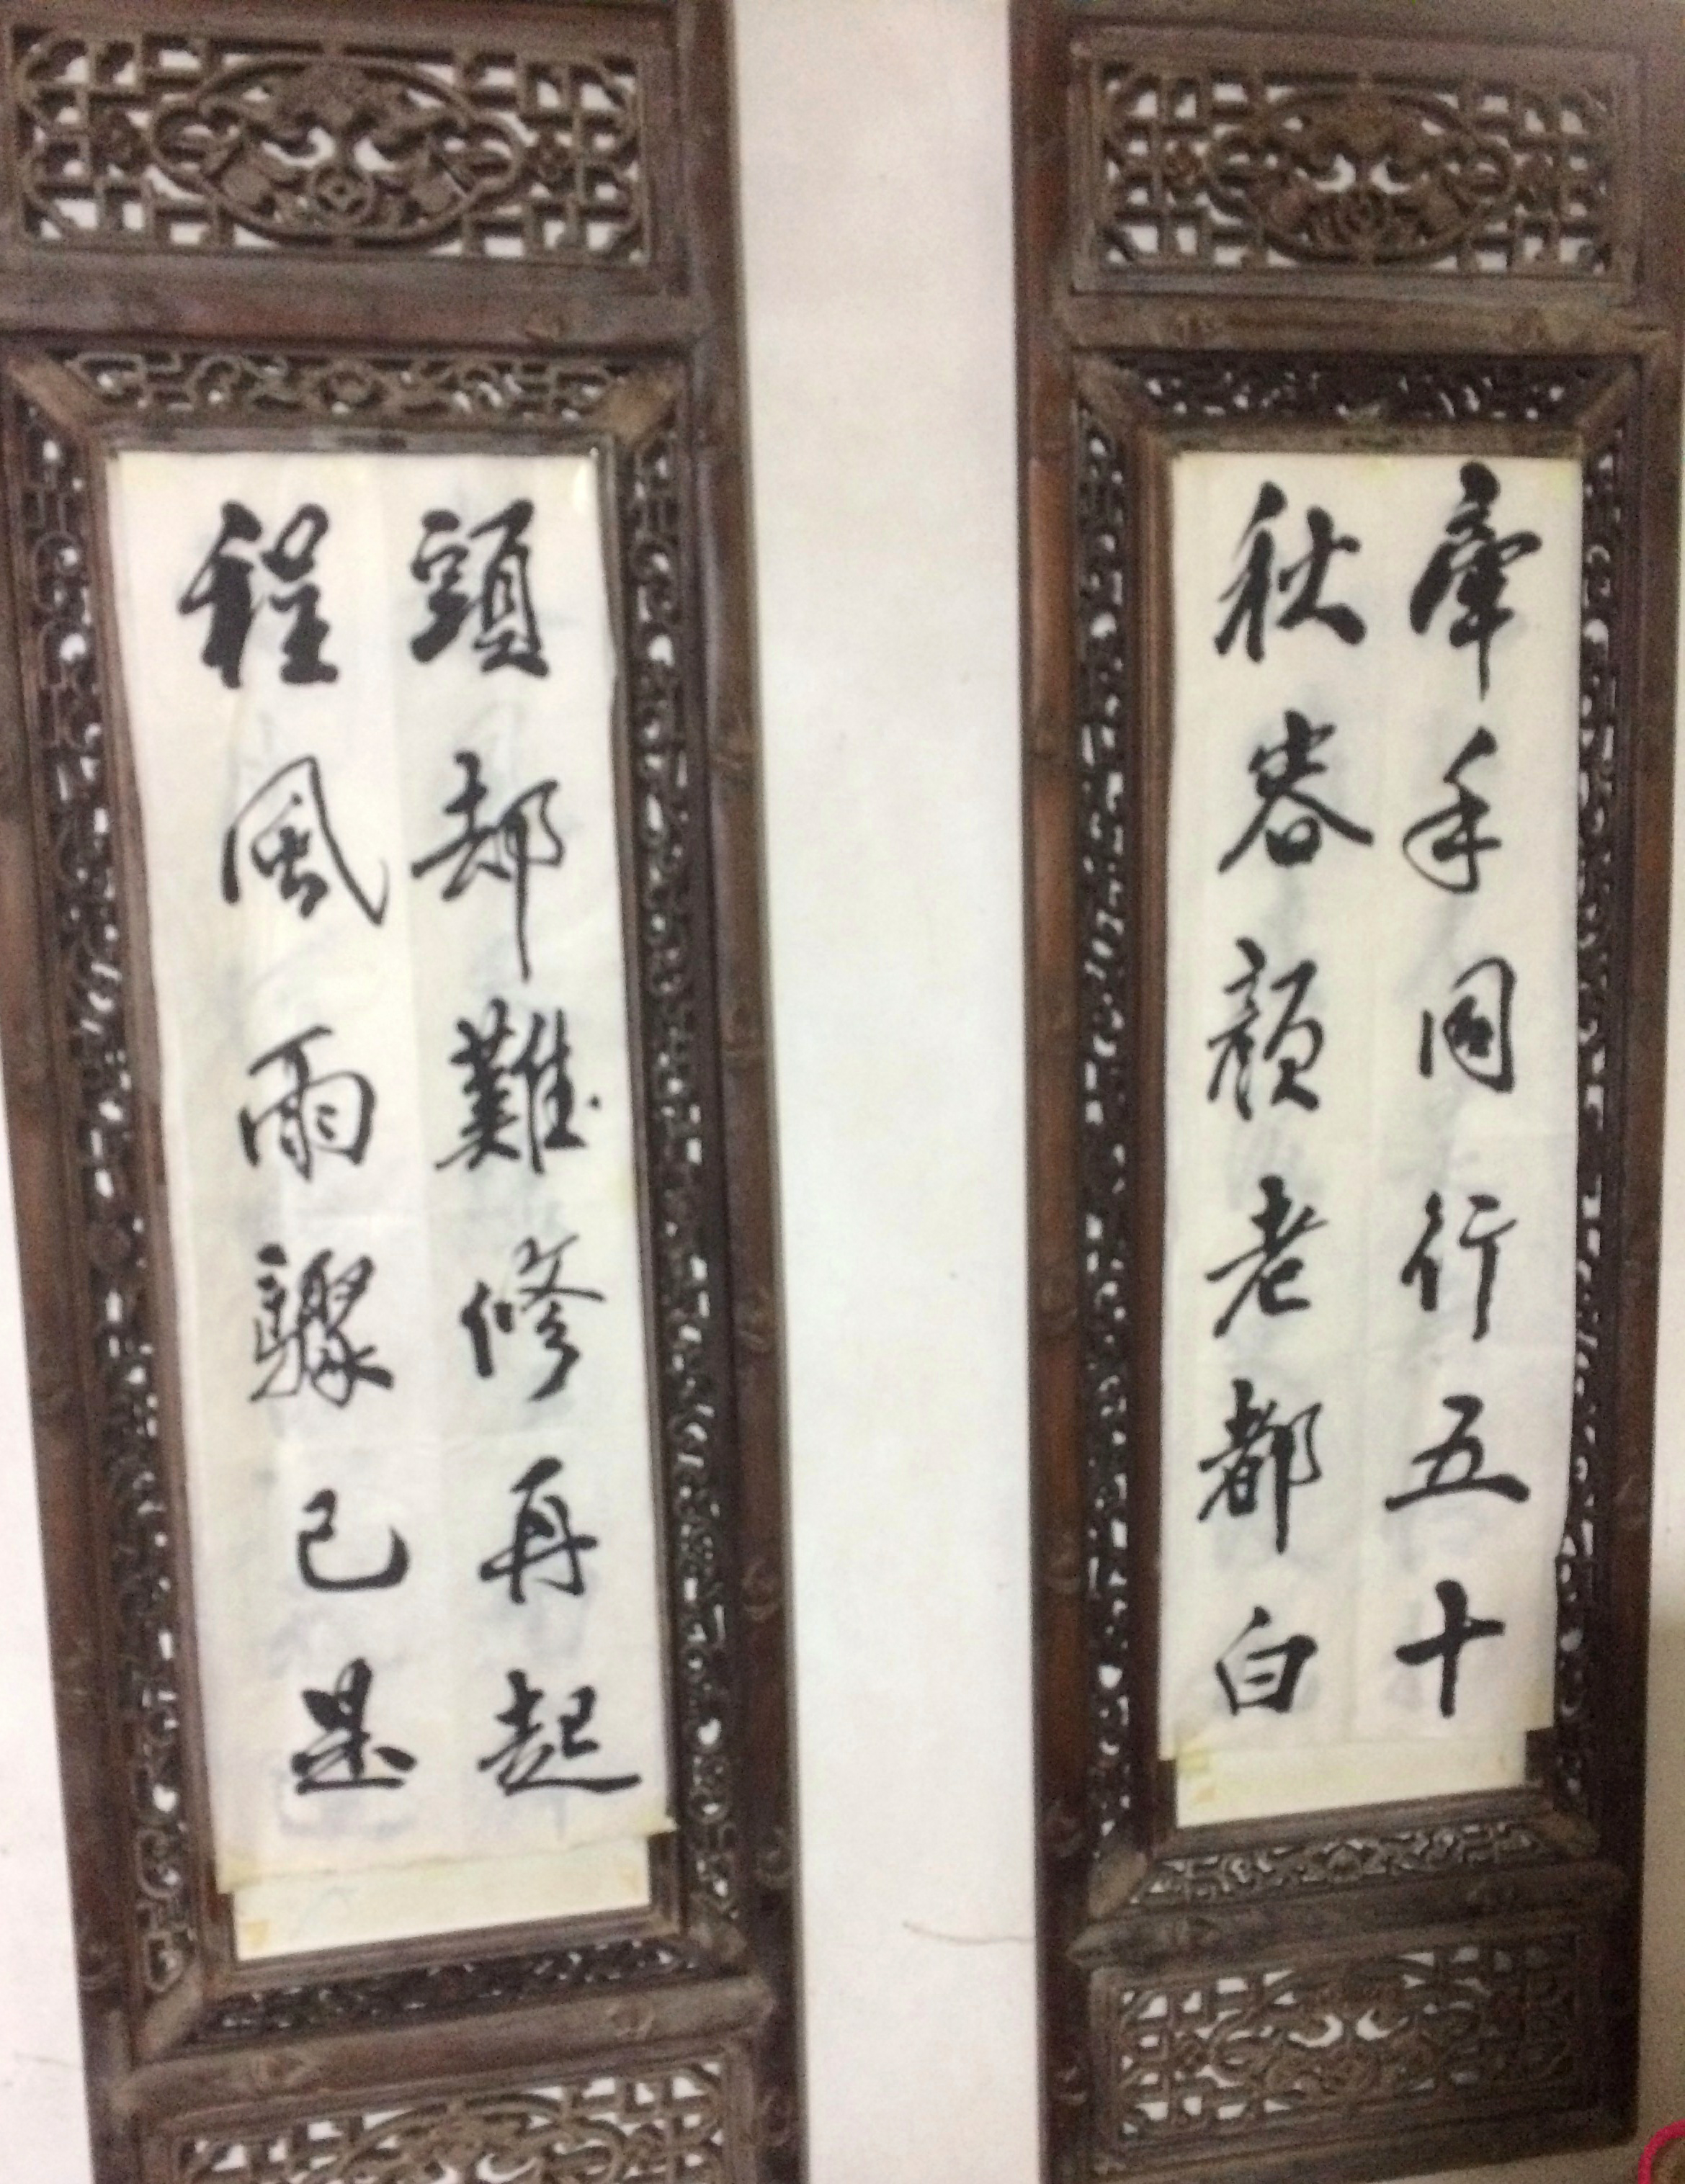 牽手同行五十
秋容顏老都白
頭却難修再起
程風雨驟已是